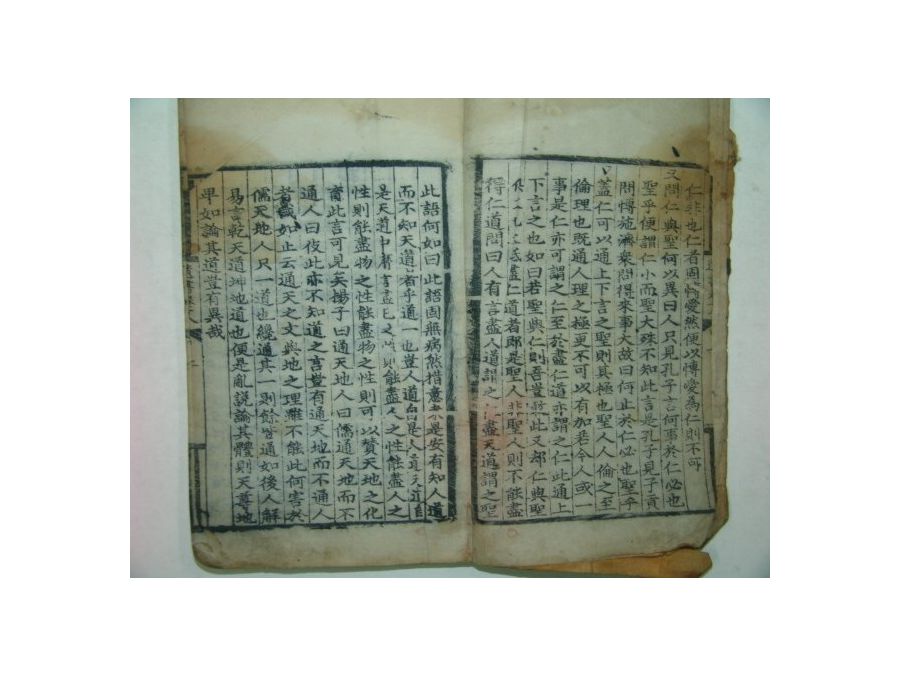 仁非也仁者固愽愛然便以愽愛為仁則不可
又問仁與聖何以異曰人只見孔子言何事於仁必也
聖乎便謂仁小而聖大殊不知此言是孔子見子貢
問愽施濟衆問得來事大故曰何止於仁必也聖乎
蓋仁可以通上下言之聖則其極也聖人人倫之至
倫理也既通人理之極更不可以有加若今人或一
事是仁亦可謂之仁至於盡仁道亦謂之仁此通上
下言之也如曰若聖與仁則吾豈敢此又却仁與聖
盡仁道者即是聖人非聖人則不能盡
得仁道問曰人有言盡人道謂之仁盡天道謂之聖
此語何如曰此語固無病然措意未是安有知人道
而不知天道者乎道一也豈人道自是人道天道自
是天道中庸言盡己之性則能盡人之性能盡人之
性則能盡物之性能盡物之性則可以賛天地之化
育此言可見矣揚子曰通天地人曰儒通天地而不
通人曰伎此亦不知道之言豈有通天地而不通人
者哉如止云通天之文與地之理雖不能此何害於
儒天地人只一道也纔通其一則餘皆通如後人解
易言乾天道坤地道也便是亂說論其體則天尊地
卑如論其道豈有異哉